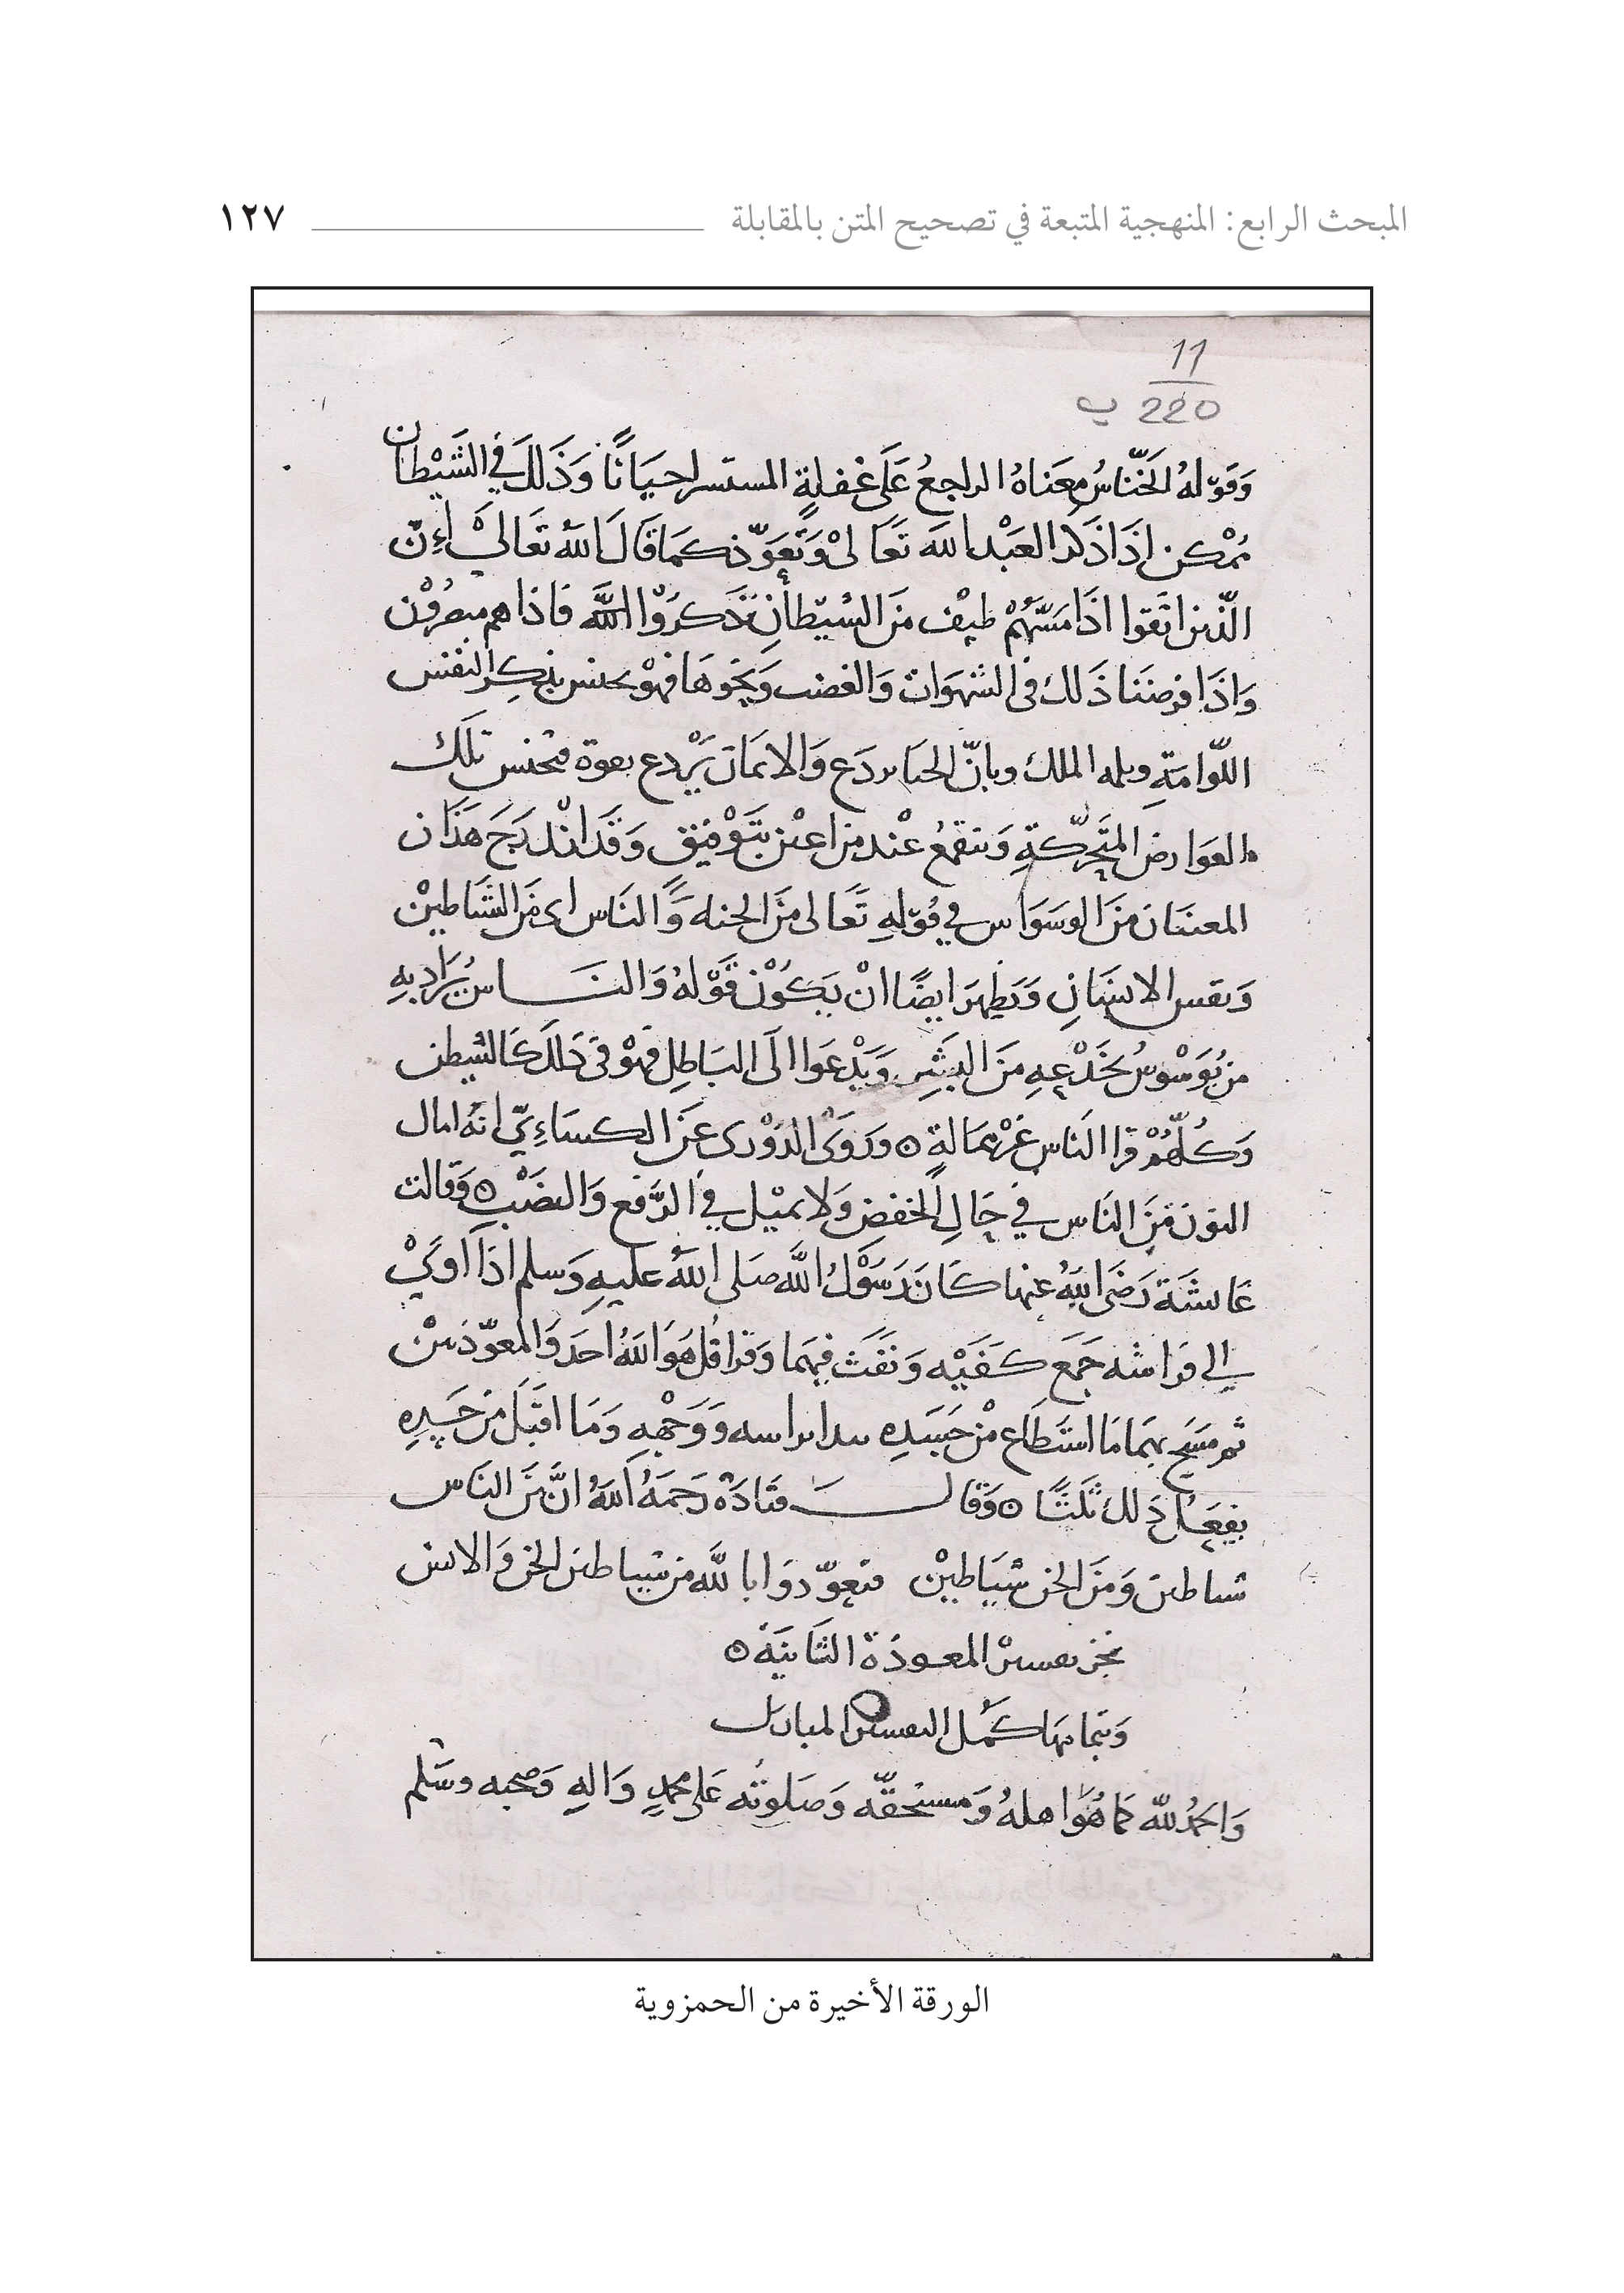 المبحث الرابع: المنهجية المتبعة في تصحيح المتن بالمقابلة ١٢٧
11
220 ب
وَقَوْلهُ الخَنَّاسُ معَناهُ الراجعُ عَلَى غفلةٍ المستسر احيَانًا وَذَلكَ في الشَيْطان
مُمْكن اذَا ذَكَر العَبْد اللهَ تَعَالىْ وَتَعَوّذ كمَا قَالَ اللهُ تعَاليْ اِنّ
الّذين اتَقوا اذَا مَسَّهُمْ طيْف منَ الشيّطانِ تَذَكرُوْا اللَّهَ فاذا هم مبصرُوْن
وَاذَا فرضنَا ذَلك فى الشهوَات وَالغضب وَنَحوهَا فهوْ يخنس بذكِر النفس
اللّوامَةِ وبلمه الملك وبانّ الحيَا يردَع وَالايمَان يَرْدع بقوة فتخنس تلك
العوَارض المتَحرّكةِ وَتنقمعُ عنْد من اعين بتَوْفيْق وَقَد اندْرَجَ هَذَان
المعنَيَان منَ الوسوَاس في قوْلهِ تَعَالى منَ الجنه وَالنَاس اى منَ الشيَاطيْن
وَنفس الانسَانِ وَيَظهر ايضًا انْ يَكوْن قوْلهُ وَالنَاس يُرَاد بهِ
من يُوَسْوسُ بخَدْعهِ منَ البشَرِ وَيَدْعوا الَى البَاطِل فهوْ في ذَلكَ كَالشيطن
وَكلّهُمْ قرا النَاس غيْر ممَالةٍ ٥ وَرَوَى الدوْرى عَن الكسَاءِيّ انهُ امال
النوْن منَ النَاس في حَالِ الخفض وَلا يميْل في الرَّفع وَالنصْب ٥ وَقالت
عَايشَة رَضَى اللهُ عنها كَانَ رَسُوْلُ اللَّه صَلى اللهُ عليهِ وَسلم اذَا اوَىْ
الي فرَاشه جَمَع كفَيْه وَنَفَث فيهمَا وَقرا قلْ هُوَ اللهُ احَد وَالمعوّذتيْن
ثم مسَح بهمَا مَا استَطَاع منْ جَسَدهِ يبدا براسه وَوَجْههِ وَمَا اقبَل من جَسَدهِ
يفعَلُ ذَلك ثلثًا ٥ وَقالَ قتَادَة رَحمَهُ اللهُ انَّ منَ النَاس
شياطين وَمنَ الجن شيَاطيْن فتعوّذوَا باللَّه من شياطين الجن وَالانس
نجز تفسير المعوذة الثَانيَة ٥
وَبتمامهَا كمُل التفسير المبارك
وَالحمْدُ للّه كما هُوَ اهلهُ وَمستحقّه وَصَلوتُه عَلى محمدٍ وَالهِ وَصحبه وسَلم
الورقة الأخيرة من الحمزوية